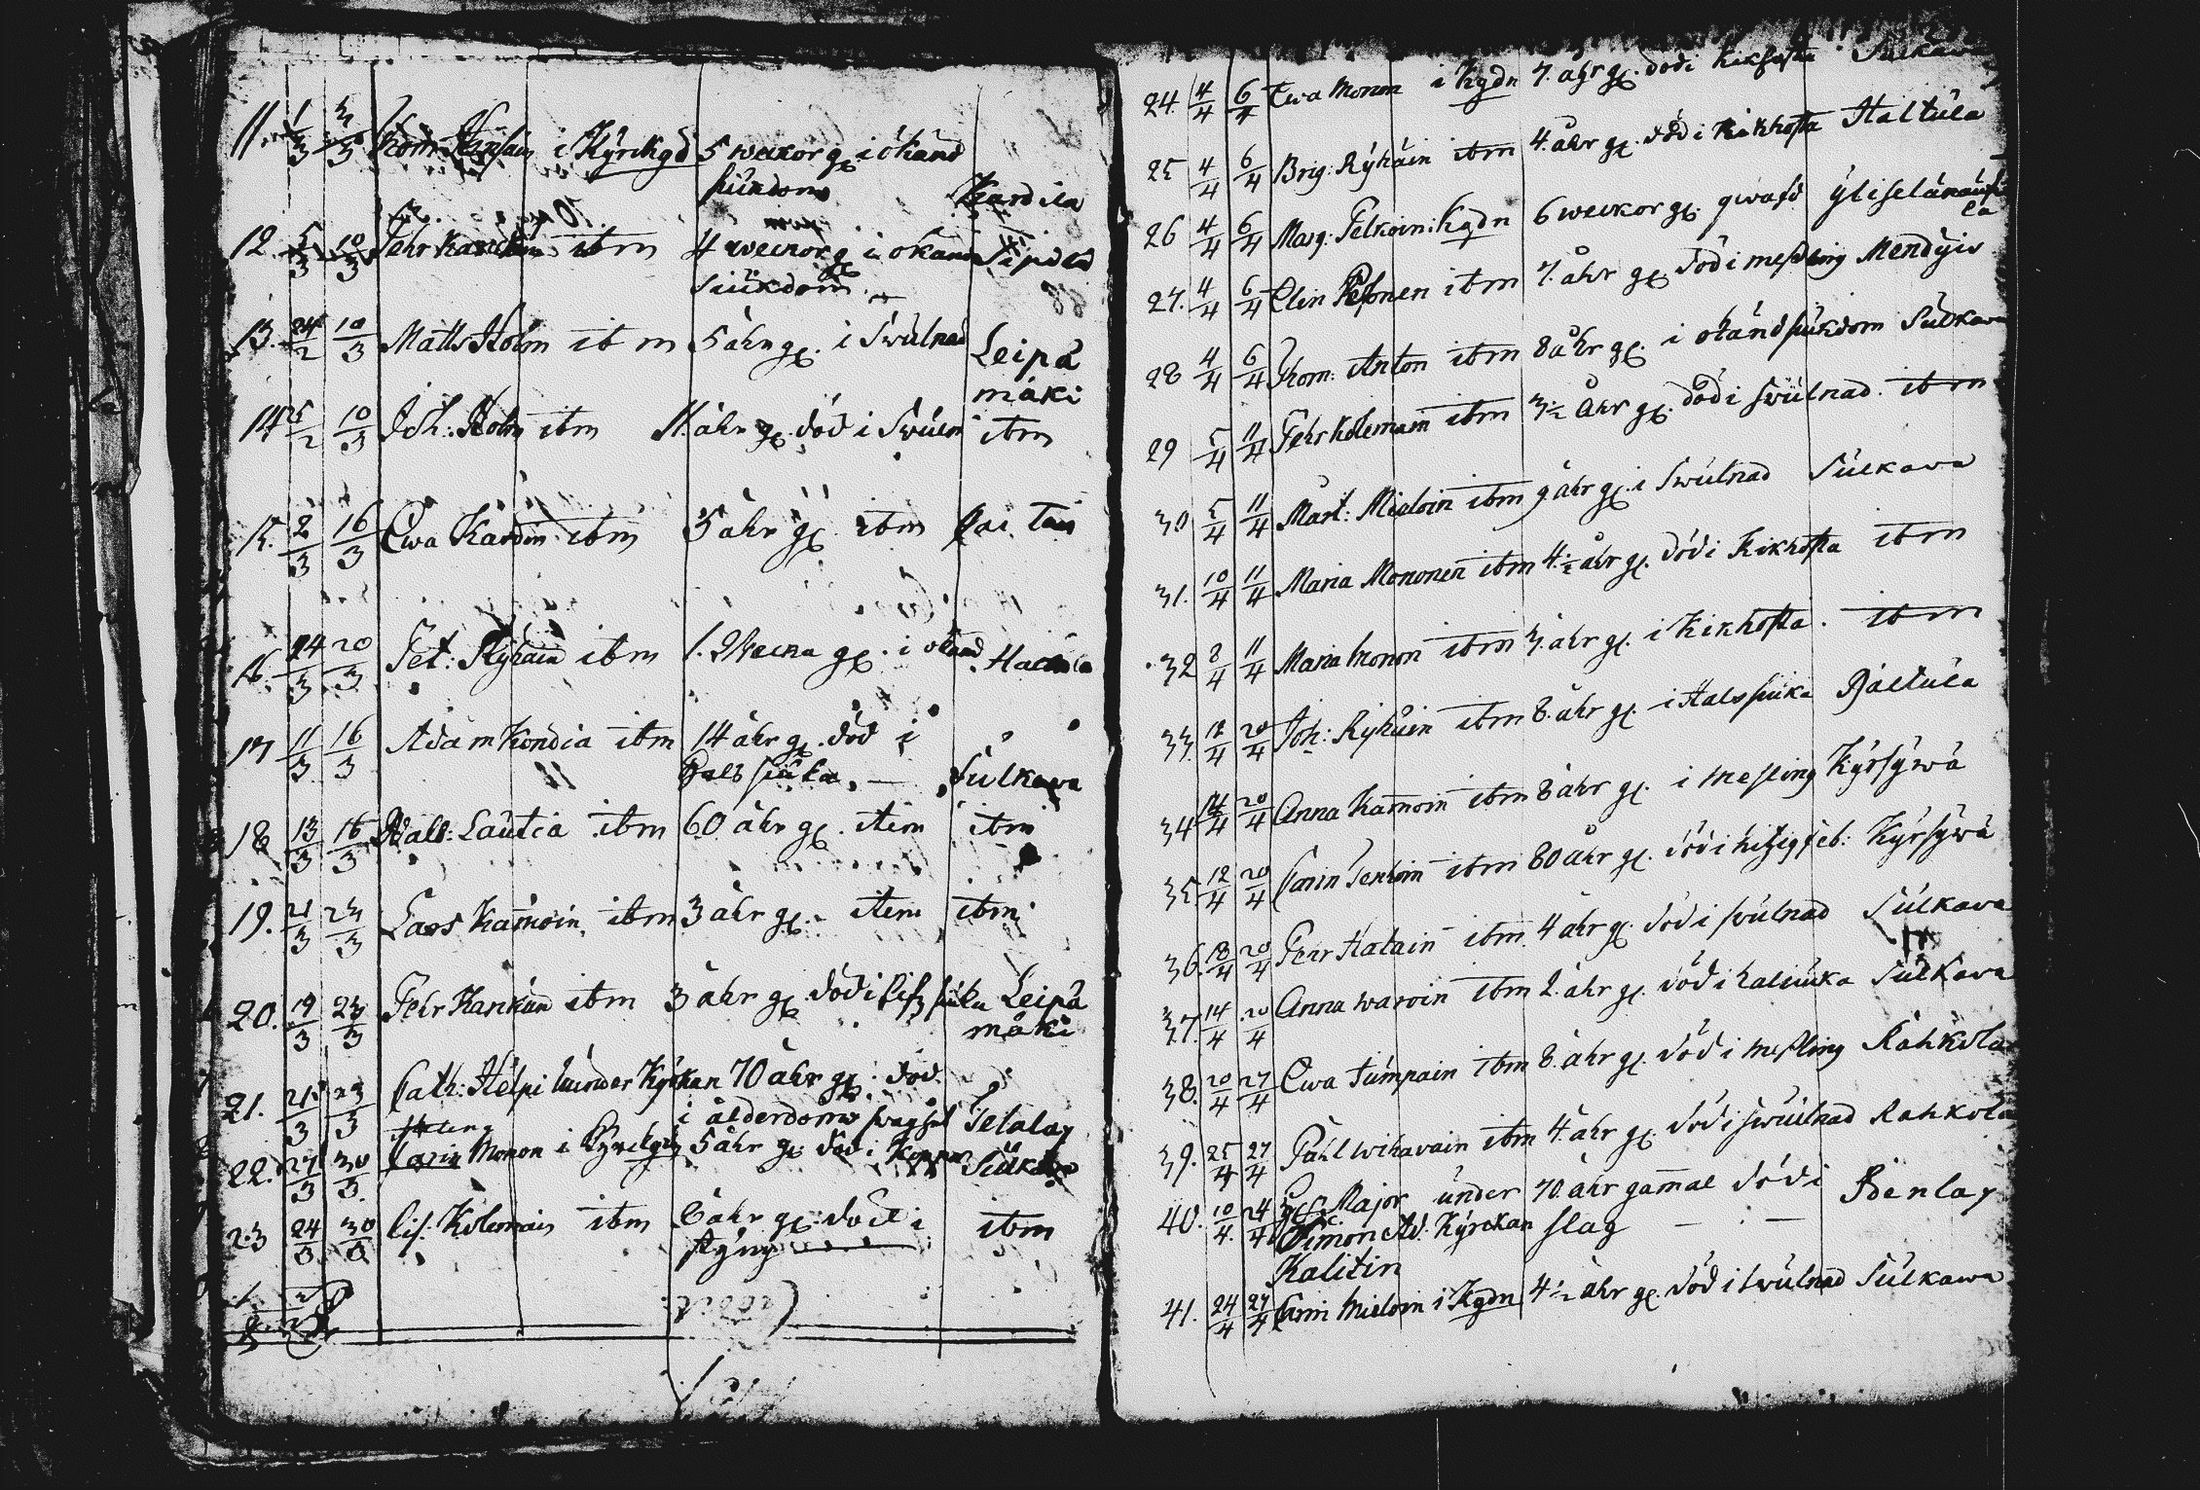 11. 1/3 3/3 i Kyrckgd 5 weckor gl. i okänd
siukdom Kardila
12. 5/3 10/3 Pehr itm 4 weckor gl. i okänd
siukdom
13. 24/2 10/3 Matts Holm itm 5 åhr gl. i Swulnad Leipä
mäki
14 25/2 10/3 Joh: Holm itm 11. åhr gl. död i Swuln itm
15. 2/3 16/3 Ewa Kardin itm 5 åhr gl. itm
16. 14/3 20/3 Pet: Ryhäin itm 1. Wecka gl. i okänd
17 11/3 16/3 Adam Kondia itm 14 åhr gl. död i
Halssiuka. — Sulkawa
18 13/3 16/3 Wald: Lautia itm 60 åhr gl. item itm
19. 21/3 23/3 Lars Kamoin itm 3 åhr gl. item itm
20. 19/3 23/3 Pehr Kankän itm 3 åhr gl. död i siuka Leipä
mäki
21. 21/3 23/3 Cath: Helpi under Kyrkan 70 åhr gl. död
i ålderdoms swaghet
22. 27/3 30/3 Carin Monon i Kyrckgd 5 åhr gl. död i Koppor
23 24/3 30/3 Lis. Kolemain itm 8 åhr gl. död i itm
styng
24. 4/4 6/4 Ewa Monon i Kgdn 7. åhr gl. död i Kikhosta Sulkawa
25 4/4 6/4 Brig: Ryhäin itm 4. åhr gl. död i Kikhosta Haltula
26 4/4 6/4 Marg: Pelkoin i Kgdn 6 weckor gl. qwafd
la
27. 4/4 6/4 Elin Pesonen itm 7. åhr gl. död i messling Mendyis
28 4/4 6/4 Thom: Anton itm 8 åhr gl. i okänd siukdom Sulkawa
29 5/4 11/4 Pehr Kolemain itm 3 1/2 åhr gl. död i swulnad. itm
30 5/4 11/4 Mart: Mieloin itm 9 åhr gl. i Swulnad Sulkawa
31. 10/4 11/4 Maria Mononen itm 4. 1/2 åhr gl. död i Kikhosta itm
32 8/4 11/4 Maria Monon itm 3. åhr gl. i Kikhosta. itm
33. 12/4 20/4 Joh: Ryhäin itm 8. åhr gl. i Halssiuka
34 14/4 20/4 Anna Kamoin itm 8 åhr gl. i messling Kyrsywä
35 12/4 20/4 Carin itm 80 åhr gl. död i hitzig feb: Kyrsywä
36. 18/4 20/4 Pehr Halain itm 4 åhr gl. död i swulnad Sulkawa
37. 14/4 20/4 Anna Waroin itm 2. åhr gl. död i halsiuka Sulkawa
38. 20/4 27/4 Ewa Tumpain itm 8. åhr gl. död i messling Rahkola
39. 25/4 27/4 Påhl Wihawain itm 4. åhr gl. död i swulnad Rahkola
40. 10/4. 24/4 Major under 70. åhr gammal död i
Simon Ad: Kyrckan slag — —
Kalitin
41. 24/4 27/4 Carin Mieloin i Kgdn 4 1/2 åhr gl. död i swulnad Sulkawa